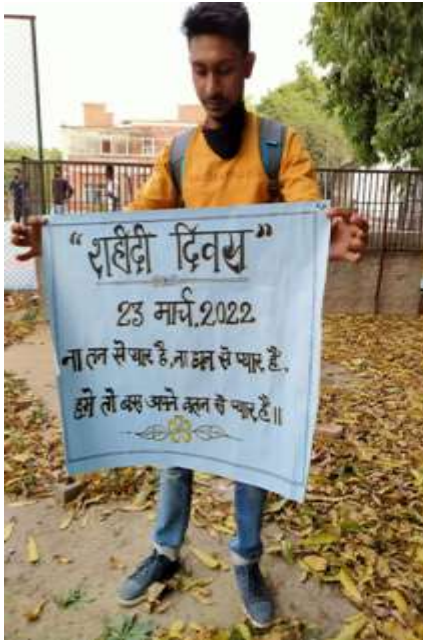 “शहीदी दिवस”
23 मार्च, 2022
ना तन से प्यार है, ना धन से प्यार है,
हमे तो बस अपने वतन से प्यार है॥